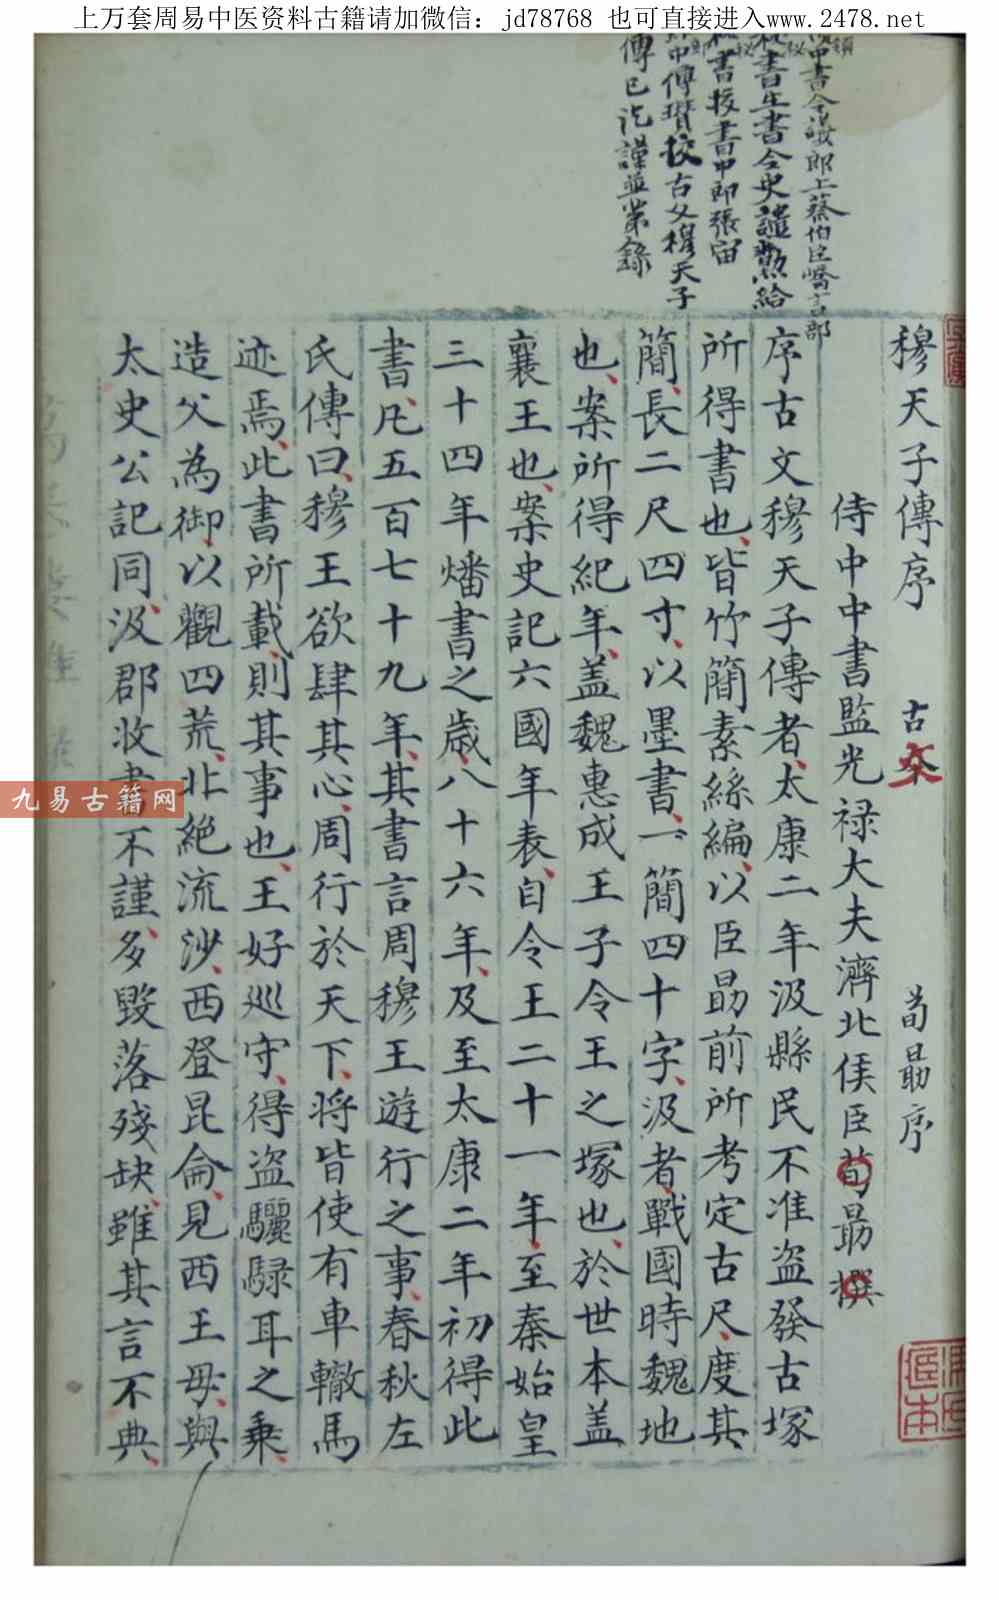 上万套周易中医资料古籍请加微信：jd78768 也可直接进入www.2478.net
中書令議郎上蔡伯臣嶠言部
秘書主書令史譴勲給
秘書校書中郎張宙
郎中傅瓚校古文穆天子
傳已訖謹並第錄
穆天子傳序 古 荀勗序
侍中中書監光禄大夫濟北侯臣荀勗撰
序古文穆天子傳者太康二年汲縣民不准盗發古塚
所得書也皆竹簡素絲編以臣勗前所考定古尺度其
簡長二尺四寸以墨書一簡四十字汲者戰國時魏地
也案所得紀年盖魏惠成王子令王之塚也於世本盖
襄王也案史記六國年表自令王二十一年至秦始皇
三十四年燔書之歳八十六年及至太康二年初得此
書凡五百七十九年其書言周穆王遊行之事春秋左
氏傳曰穆王欲肆其心周行於天下将皆使有車轍馬
迹焉此書所載則其事也王好巡守得盗驪騄耳之乗
造父為御以觀四荒北絶流沙西登昆侖見西王母與
太史公記同汲郡收書不謹多毀落殘缺雖其言不典
九易古籍网